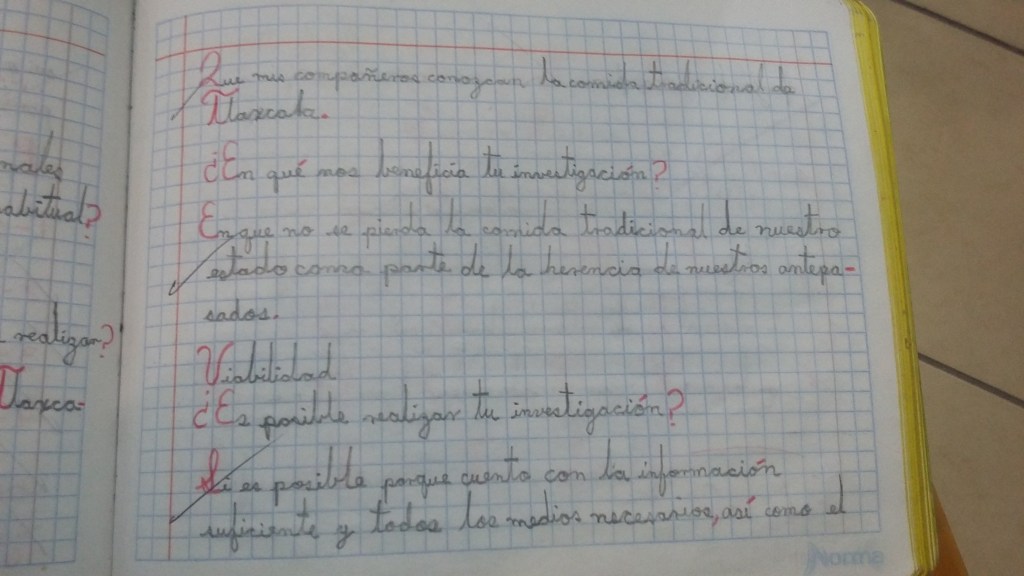 nales
abitual?
realizar?
Tlaxca-
Que mis compañeros conozcan la comida tradicional da
Tlaxcala.
¿En qué nos beneficia tu investigación?
En que no se pierda la comida tradicional de nuestro
estado como parte de la herencia de nuestros antepa-
sados.
Viabilidad
¿Es posible realizar tu investigación?
Si es posible porque cuento con la información
suficiente y todos los medios necesarios, así como el
Norma